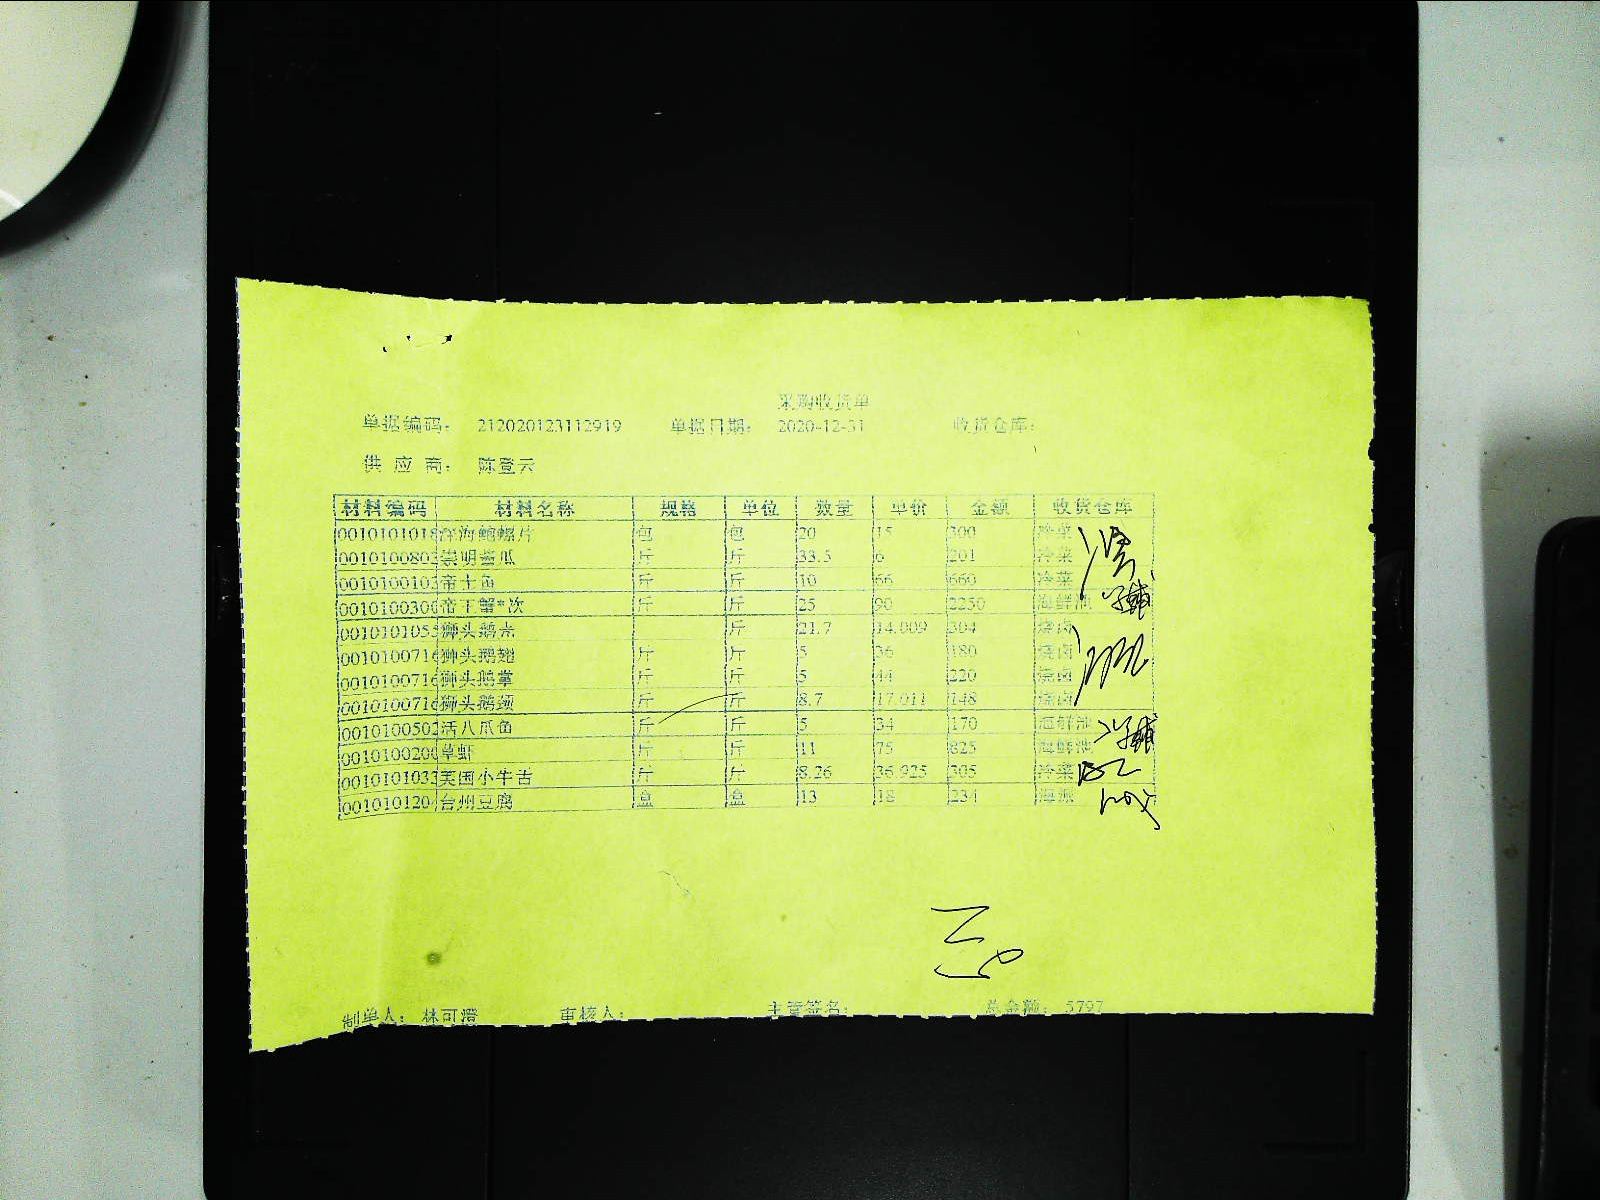 采购收货单
单据编码： 212020123112919 单据日期： 2020-12-31 收货仓库：
供 应 商： 陈登云
材料编码 材料名称 规格 单位 数量 单价 金额 收货仓库
0010101018 深海鲍螺片 包 包 20 15 300 冷菜
001010080 崇明酱瓜 斤 斤 33.5 6 201 冷菜
001010010 斤 斤 10 66 660 冷菜
001010030 帝王蟹*次 斤 25 90 2250 海鲜池
001010105 狮头鹅 斤 21.7 14.009 304 烧卤
001010071 狮头鹅翅 斤 斤 5 36 180 烧卤
001010071 狮头鹅掌 斤 斤 5 44 220 烧卤
001010071 狮头鹅颈 斤 斤 8.7 17.011 148 烧卤
001010050 活八爪鱼 斤 斤 5 34 170 海鲜池
001010020 草虾 斤 斤 11 75 825 海鲜池
001010103 美国小牛舌 斤 斤 8.26 36.925 305 冷菜
001010120 台州豆腐 盒 盒 13 18 234
制单人： 林可澄 审核人： 主管签名： 总金额： 5797